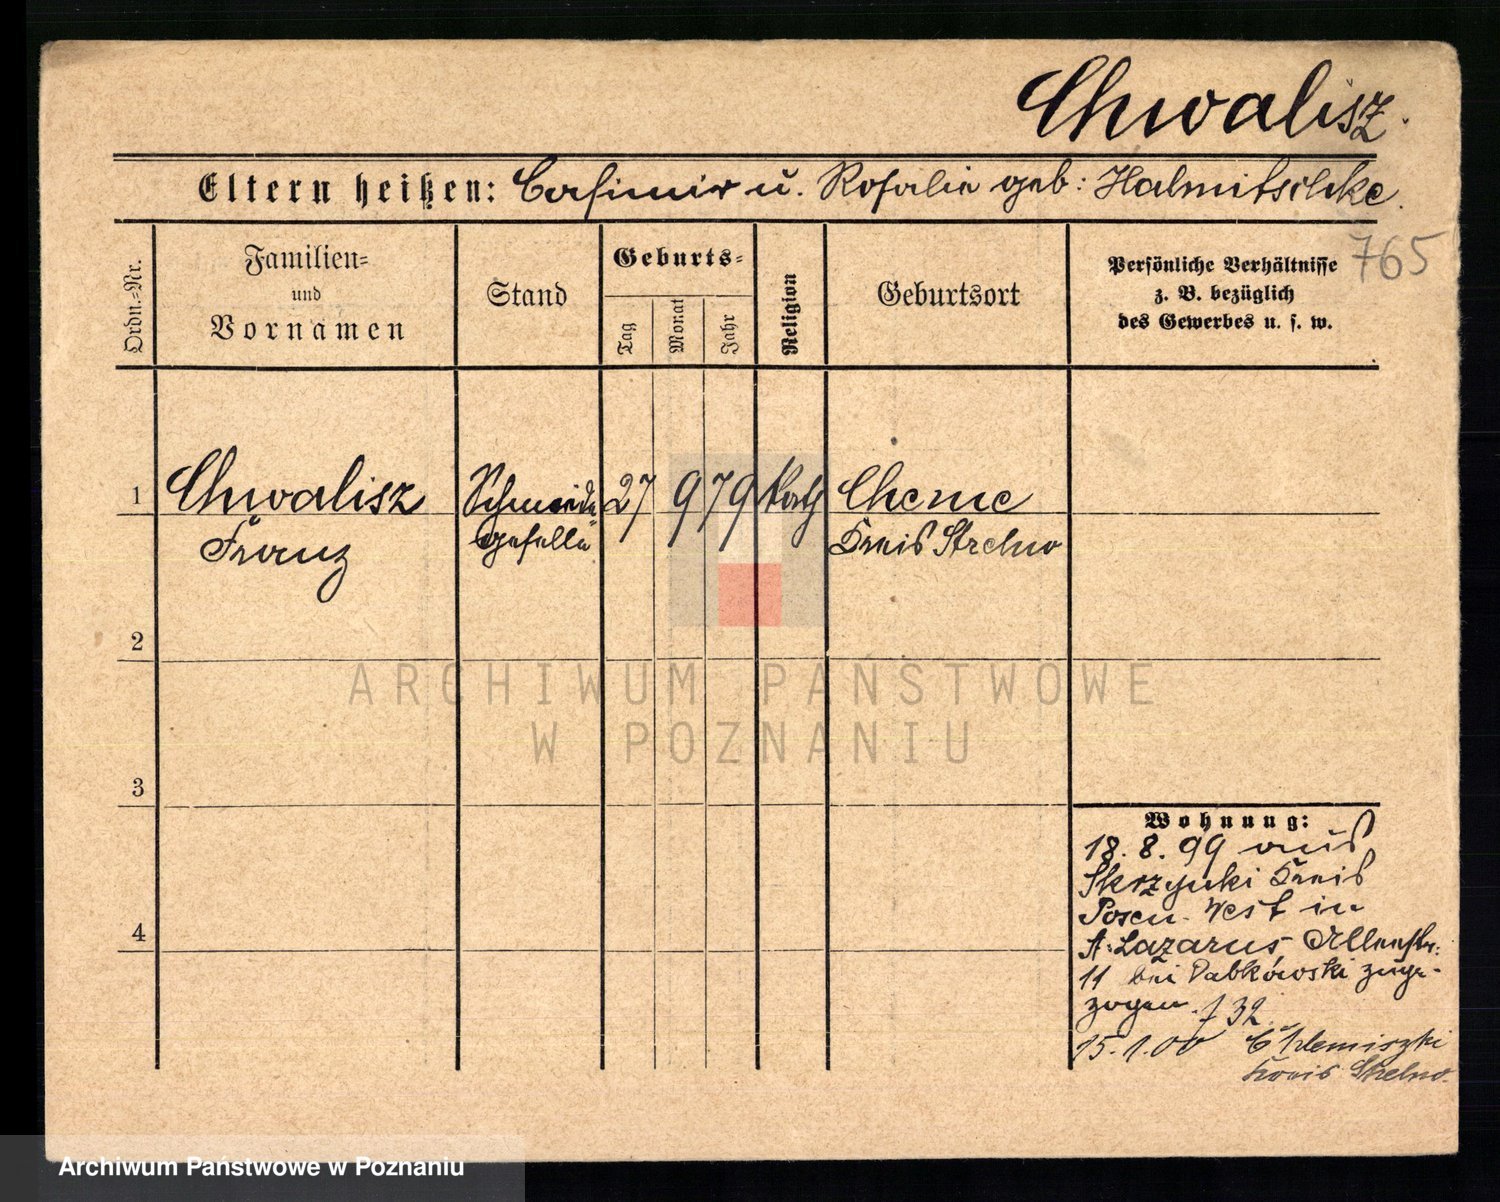 Chwalisz.
Eltern heißen: Casimir u. Rosalie geb: Halmitschke.
765
Ordn.-Nr.
Familien-
und
Vornamen
Stand
Geburts-
Tag
Monat
Jahr
Religion
Geburtsort
Persönliche Verhältnisse
z. B. bezüglich
des Gewerbes u. s. w.
1
Chwalisz
Franz
27
9
79
kath
Kreis Strelno
geselle
2
ARCHIWUM PAŃSTWOWE
W POZNANIU
3
4
Wohnung:
18. 8. 99 aus
Skrzynki Kreis
Posen-West in
St. Lazarus
11 bei Dabkowski zuge-
zogen.
15. 1. 00
Kreis Strelno.
Archiwum Państwowe w Poznaniu